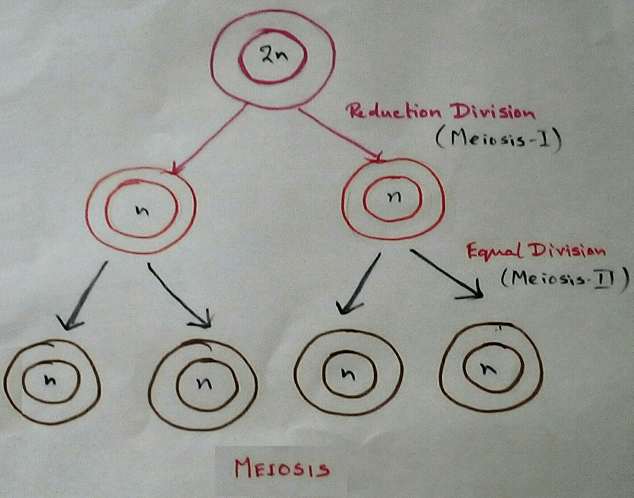 2n
Reduction Division
(Meiosis-I)
n
n
Equal Division
(Meiosis-II)
n
n
n
n
MEIOSIS